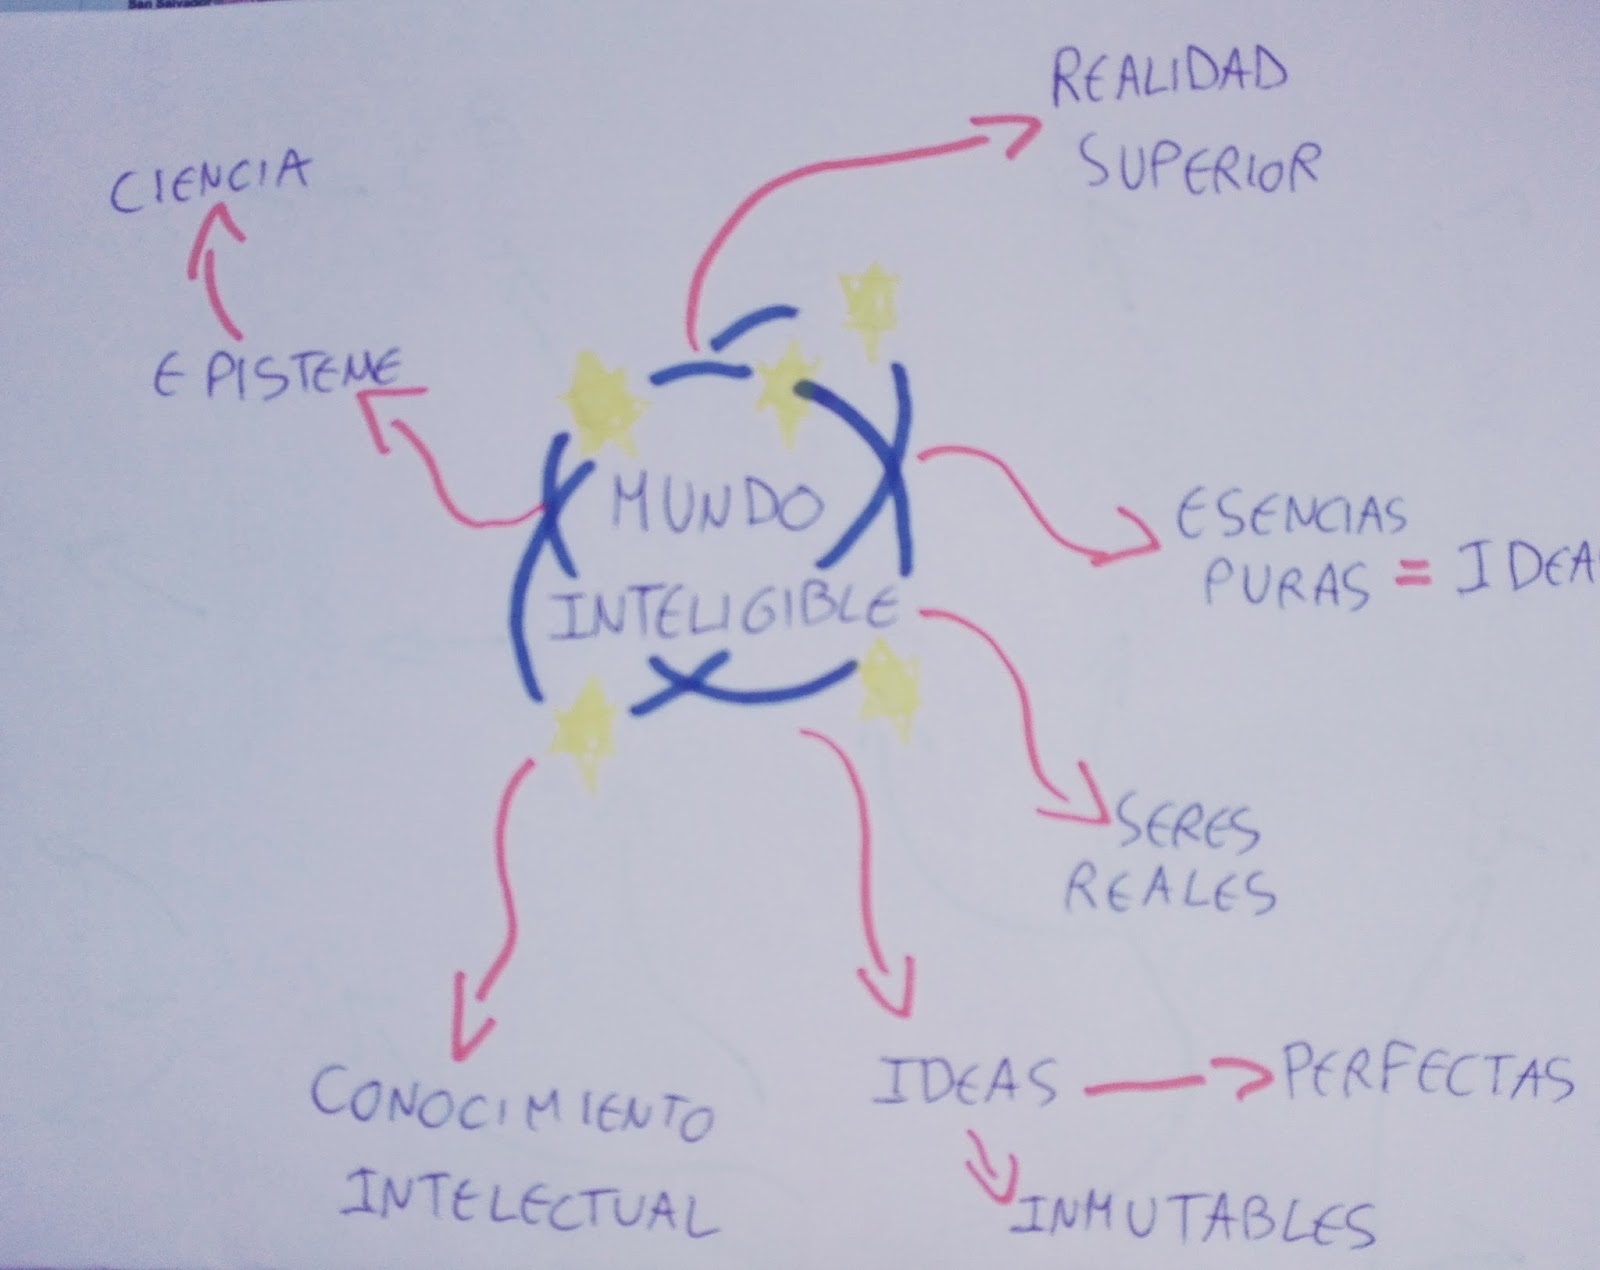 San Salvador
REALIDAD
SUPERIOR
CIENCIA
EPISTEME
MUNDO
INTELIGIBLE
ESENCIAS
PURAS = IDEA
SERES
REALES
CONOCIMIENTO
INTELECTUAL
IDEAS → PERFECTAS
INMUTABLES